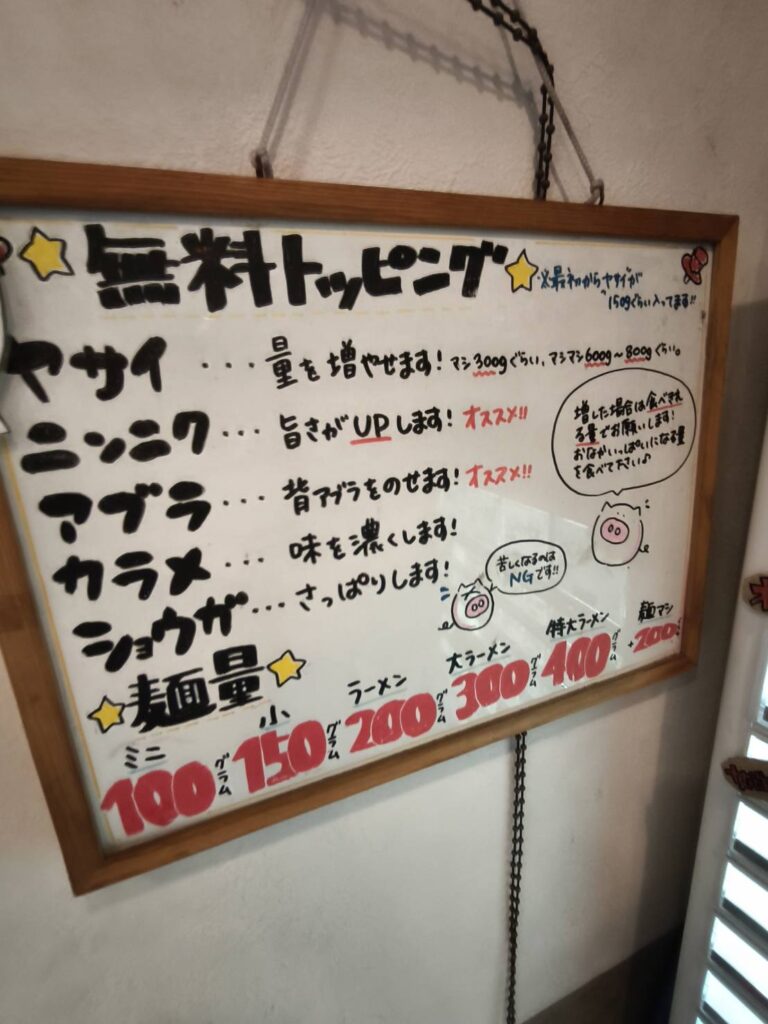 無料トッピング
※最初からヤサイが
150gぐらい入ってます!!
ヤサイ ･･･ 量を増やせます! マシ300gぐらい、マシマシ600g～800gぐらい。
ニンニク ･･･ 旨さがUPします! オススメ!!
アブラ ･･･ 背アブラをのせます! オススメ!!
カラメ ･･･ 味を濃くします!
ショウガ ･･･ さっぱりします!
増した場合は食べきれ
る量でお願いします!
おなかいっぱいになる量
を食べて下さい♪
苦しくなるのは
NGです!!
麺量
ミニ
100グラム
小
150グラム
ラーメン
200グラム
大ラーメン
300グラム
特大ラーメン
400グラム
麺マシ
+200